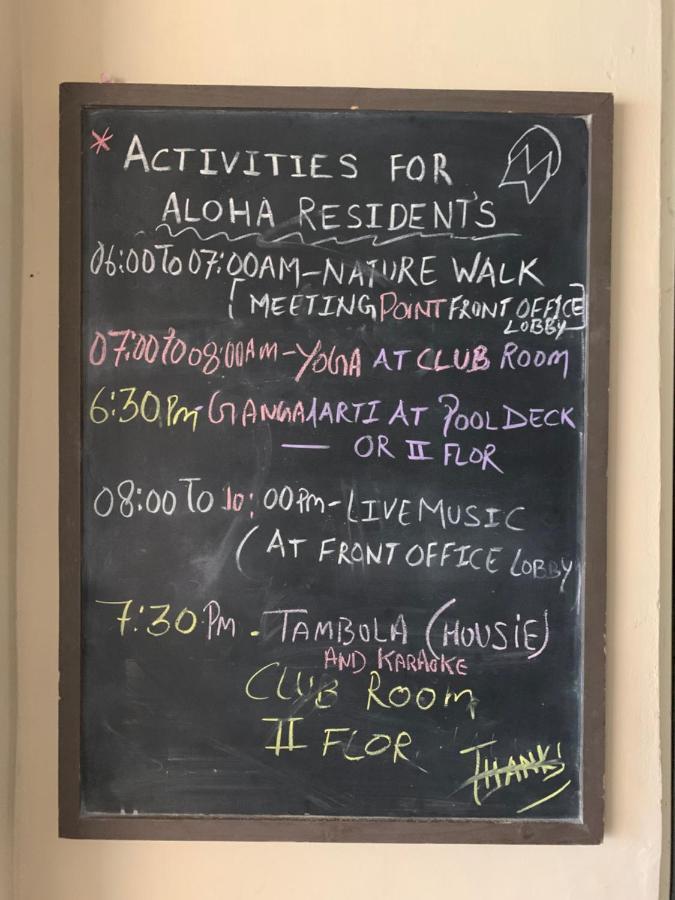 * ACTIVITIES FOR
ALOHA RESIDENTS
06:00 TO 07:00AM-NATURE WALK
[MEETING POINT FRONT OFFICE
LOBBY]
07:00 to 08:00AM-YOGA AT CLUB ROOM
6:30 Pm GANGA AARTI AT POOL DECK
— OR II FLOR
08:00 TO 10:00 Pm-LIVE MUSIC
(AT FRONT OFFICE LOBBY
7:30 Pm. TAMBOLA (HOUSiE)
AND KARAOKE
CLUB ROOM
II FLOR
THANKS